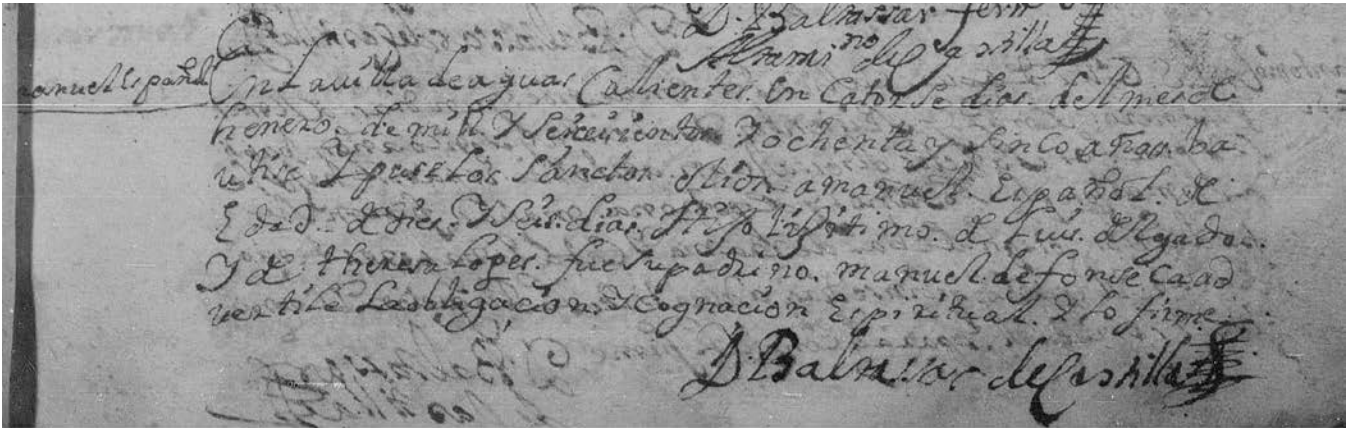 D. Baltassar fern
Altami no de Castilla
manuel español
En La villa de aguas Calientes. En Catorse dias. del mes de
henero. de mill. Y seiscientos Y ochenta y sinco años. ba
utise Y puse Los Sanctos. olios. a manuel. Español. de
Edad. de dies. Y seis. dias. Hijo lixitimo. de Luis. delgado.
Y de theresa Lopes. fue su padrino. manuel. de fonseca ad
vertile La obligacion. Y Cognacion Espiritual. Y lo firme.
D. Baltassar de Castilla